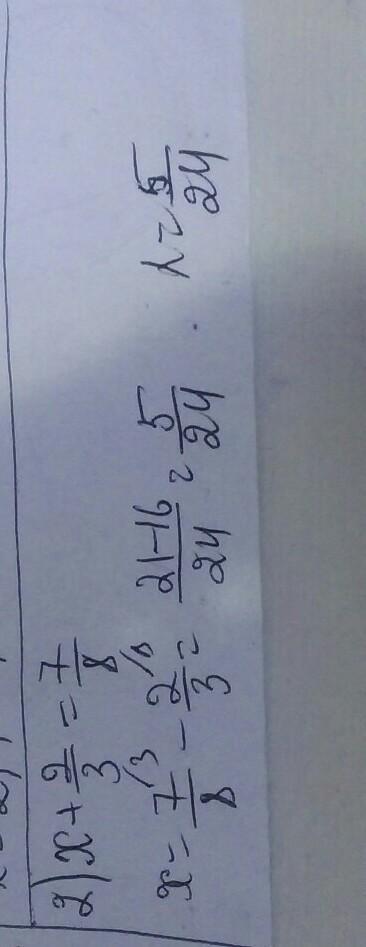 2) x + 2/3 = 7/8
x = 7/8 /3 - 2/3 /8 = 21-16/24 = 5/24 . x = 5/24